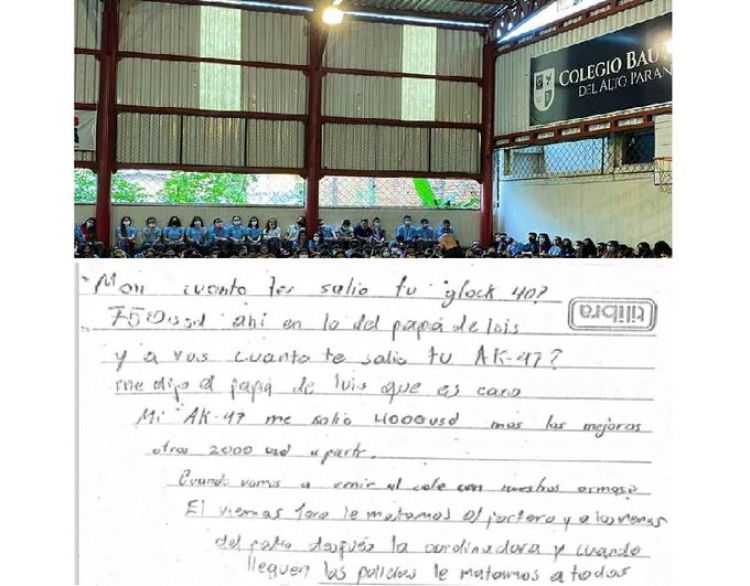 COLEGIO BAU
DEL ALTO PARAN
Mon cuanto les salio tu glock 40?
tilibra
750usd ahi en lo del papá de luis
y a vos cuanto te salio tu AK-47?
me dijo el papá de luis que es caro
Mi AK-47 me salio 4000usd mas las mejoras
otros 2000 usd a parte.
Cuando vamos a venir al cole con nuestras armas?
El viernes le matamos al portero y a los nenes
del patio después la cordinadora y cuando
lleguen los policias le matamos a todos